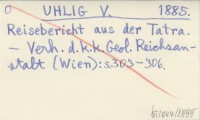 O UHLIG V. 1885.
Reisebericht aus der Tatra.
— Verh. d. k. k. Geol. Reichsan-
stalt (Wien): s. 303-306.